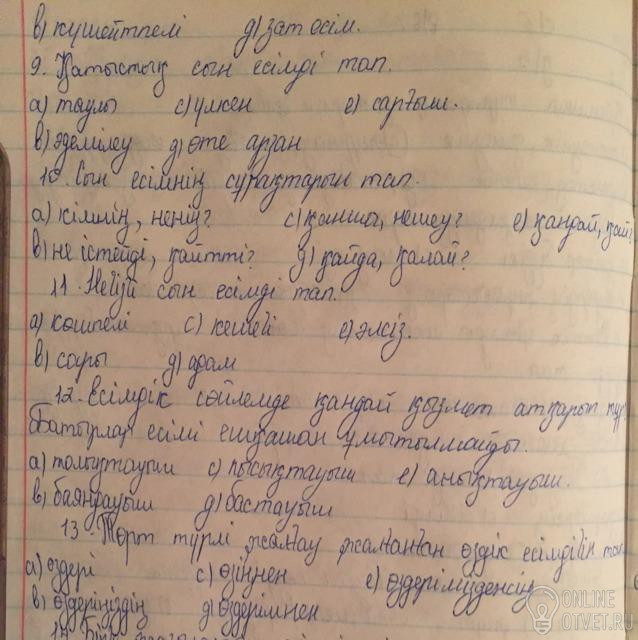 в) күшейтпелі д) зат есім.
9. Қатыстық сын есімді тап.
а) таулы с) үлкен е) сарғыш.
в) әдемілеу д) өте арзан
10. Сын есімнің сұрақтарын тап.
а) кімнің, ненің? с) қанша, нешеу? е) қандай, қай?
в) не істейді, қайтті? д) қайда, қалай?
11. Негізгі сын есімді тап.
а) көшпелі с) кешегі е) әлсіз.
в) сары д) адам
12. Есімдік сөйлемде қандай қызмет атқарып тұр
Батырлар есімі ешқашан ұмытылмайды.
а) толықтауыш с) пысықтауыш е) анықтауыш.
в) баяндауыш д) бастауыш
13. Төрт түрлі жалғау жалғанған өздік есімдігін тап
а) өздері с) өзіңнен е) өздеріміденсің
в) өздеріңіздің д) өздерімнен
ONLINE
OTVET.RU